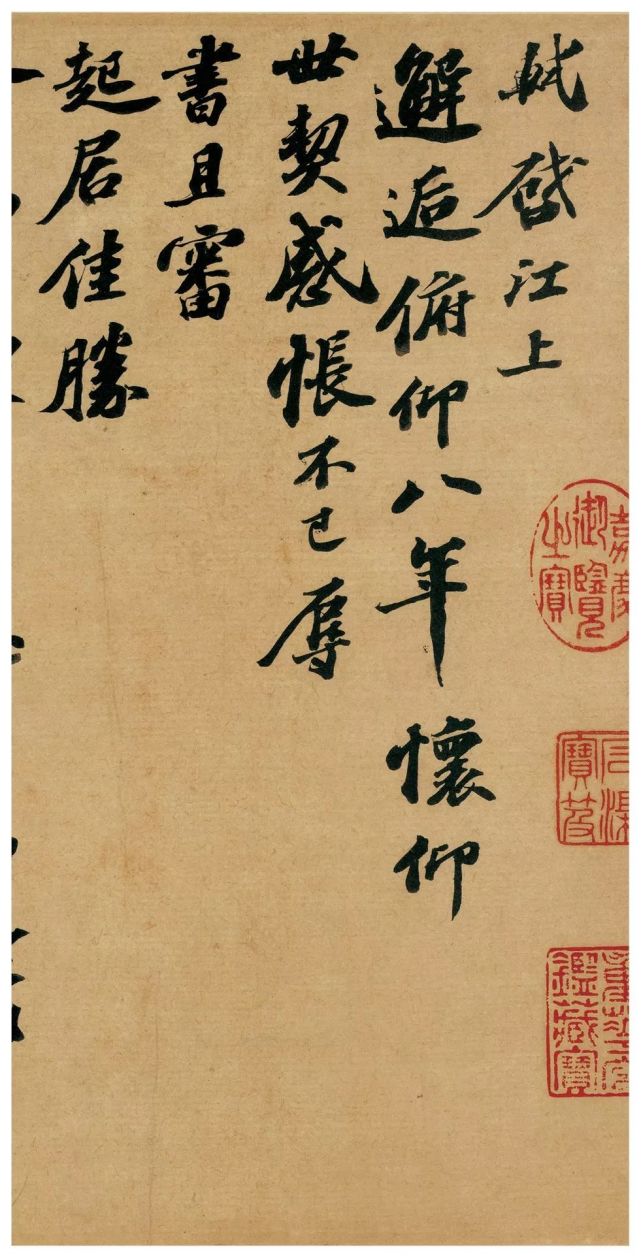 軾啓江上
邂逅俯仰八年懷仰
世契感悵不已辱
書且審
起居佳勝
嘉慶御覽之寶
石渠寶笈
鑑藏寶